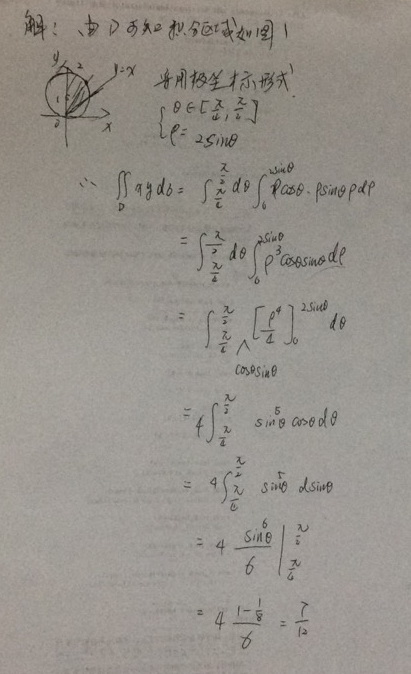 解：由D可知积分区域如图
y 2 y=x
1
0 x
采用极坐标形式
{ θ∈[π/4, π/2]
ρ=2sinθ
∴ ∬_D xydσ = ∫_{π/4}^{π/2} dθ ∫_0^{2sinθ} ρcosθ·ρsinθρdρ
= ∫_{π/4}^{π/2} dθ ∫_0^{2sinθ} ρ³cosθsinθdρ
= ∫_{π/4}^{π/2} cosθsinθ [ρ⁴/4]_0^{2sinθ} dθ
= 4∫_{π/4}^{π/2} sin⁵θ cosθdθ
= 4∫_{π/4}^{π/2} sin⁵θ dsinθ
= 4 sin⁶θ/6 |_{π/4}^{π/2}
= 4 (1-1/8)/6 = 7/12